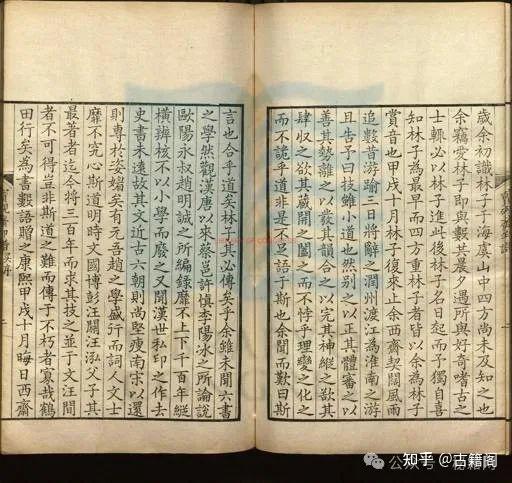 歲余初識林子于海虞山中四方尚未及知之也
余竊愛林子即與數其晨夕遇所與好奇嗜古之
士輒必以林子進此後林子名日起而予獨自喜
知林子為最早而四方重林子者皆以余為林子
賞音也甲戌十月林子復來止余西齋契闊風雨
追數昔游喻三日將辭之潤州渡江為淮南之游
且告予曰技雖小道也然別之以正其體審之以
善其勢離之以叢其韻合之以完其神縱之欲其
肆收之欲其藏開之闔之而不悖乎理變之化之
而不詭乎道非是不足語于斯也余聞而歎曰斯
言也合乎道矣林子其必傳矣乎余雖未聞六書
之學然觀漢唐以來蔡邕許慎李陽冰之所論說
歐陽永叔趙明誠之所編錄靡不上下千百年縱
橫辨核不以小學而廢之又聞漢世私印之作去
史書未遠故其文近古六朝則尚堅瘦南宋以還
則專於姿媚矣有元吾趙之學盛行而詞人文士
靡不究心斯道明時文國博彭汪關汪泓父子其
最著者迄今將三百年而求其技之並于文汪間
者不可得豈非斯道之難而傳于不朽者寡哉鶴
田行矣為書數語贈之康熙甲戌十月晦日西齋
知乎 @古籍阁
公众号